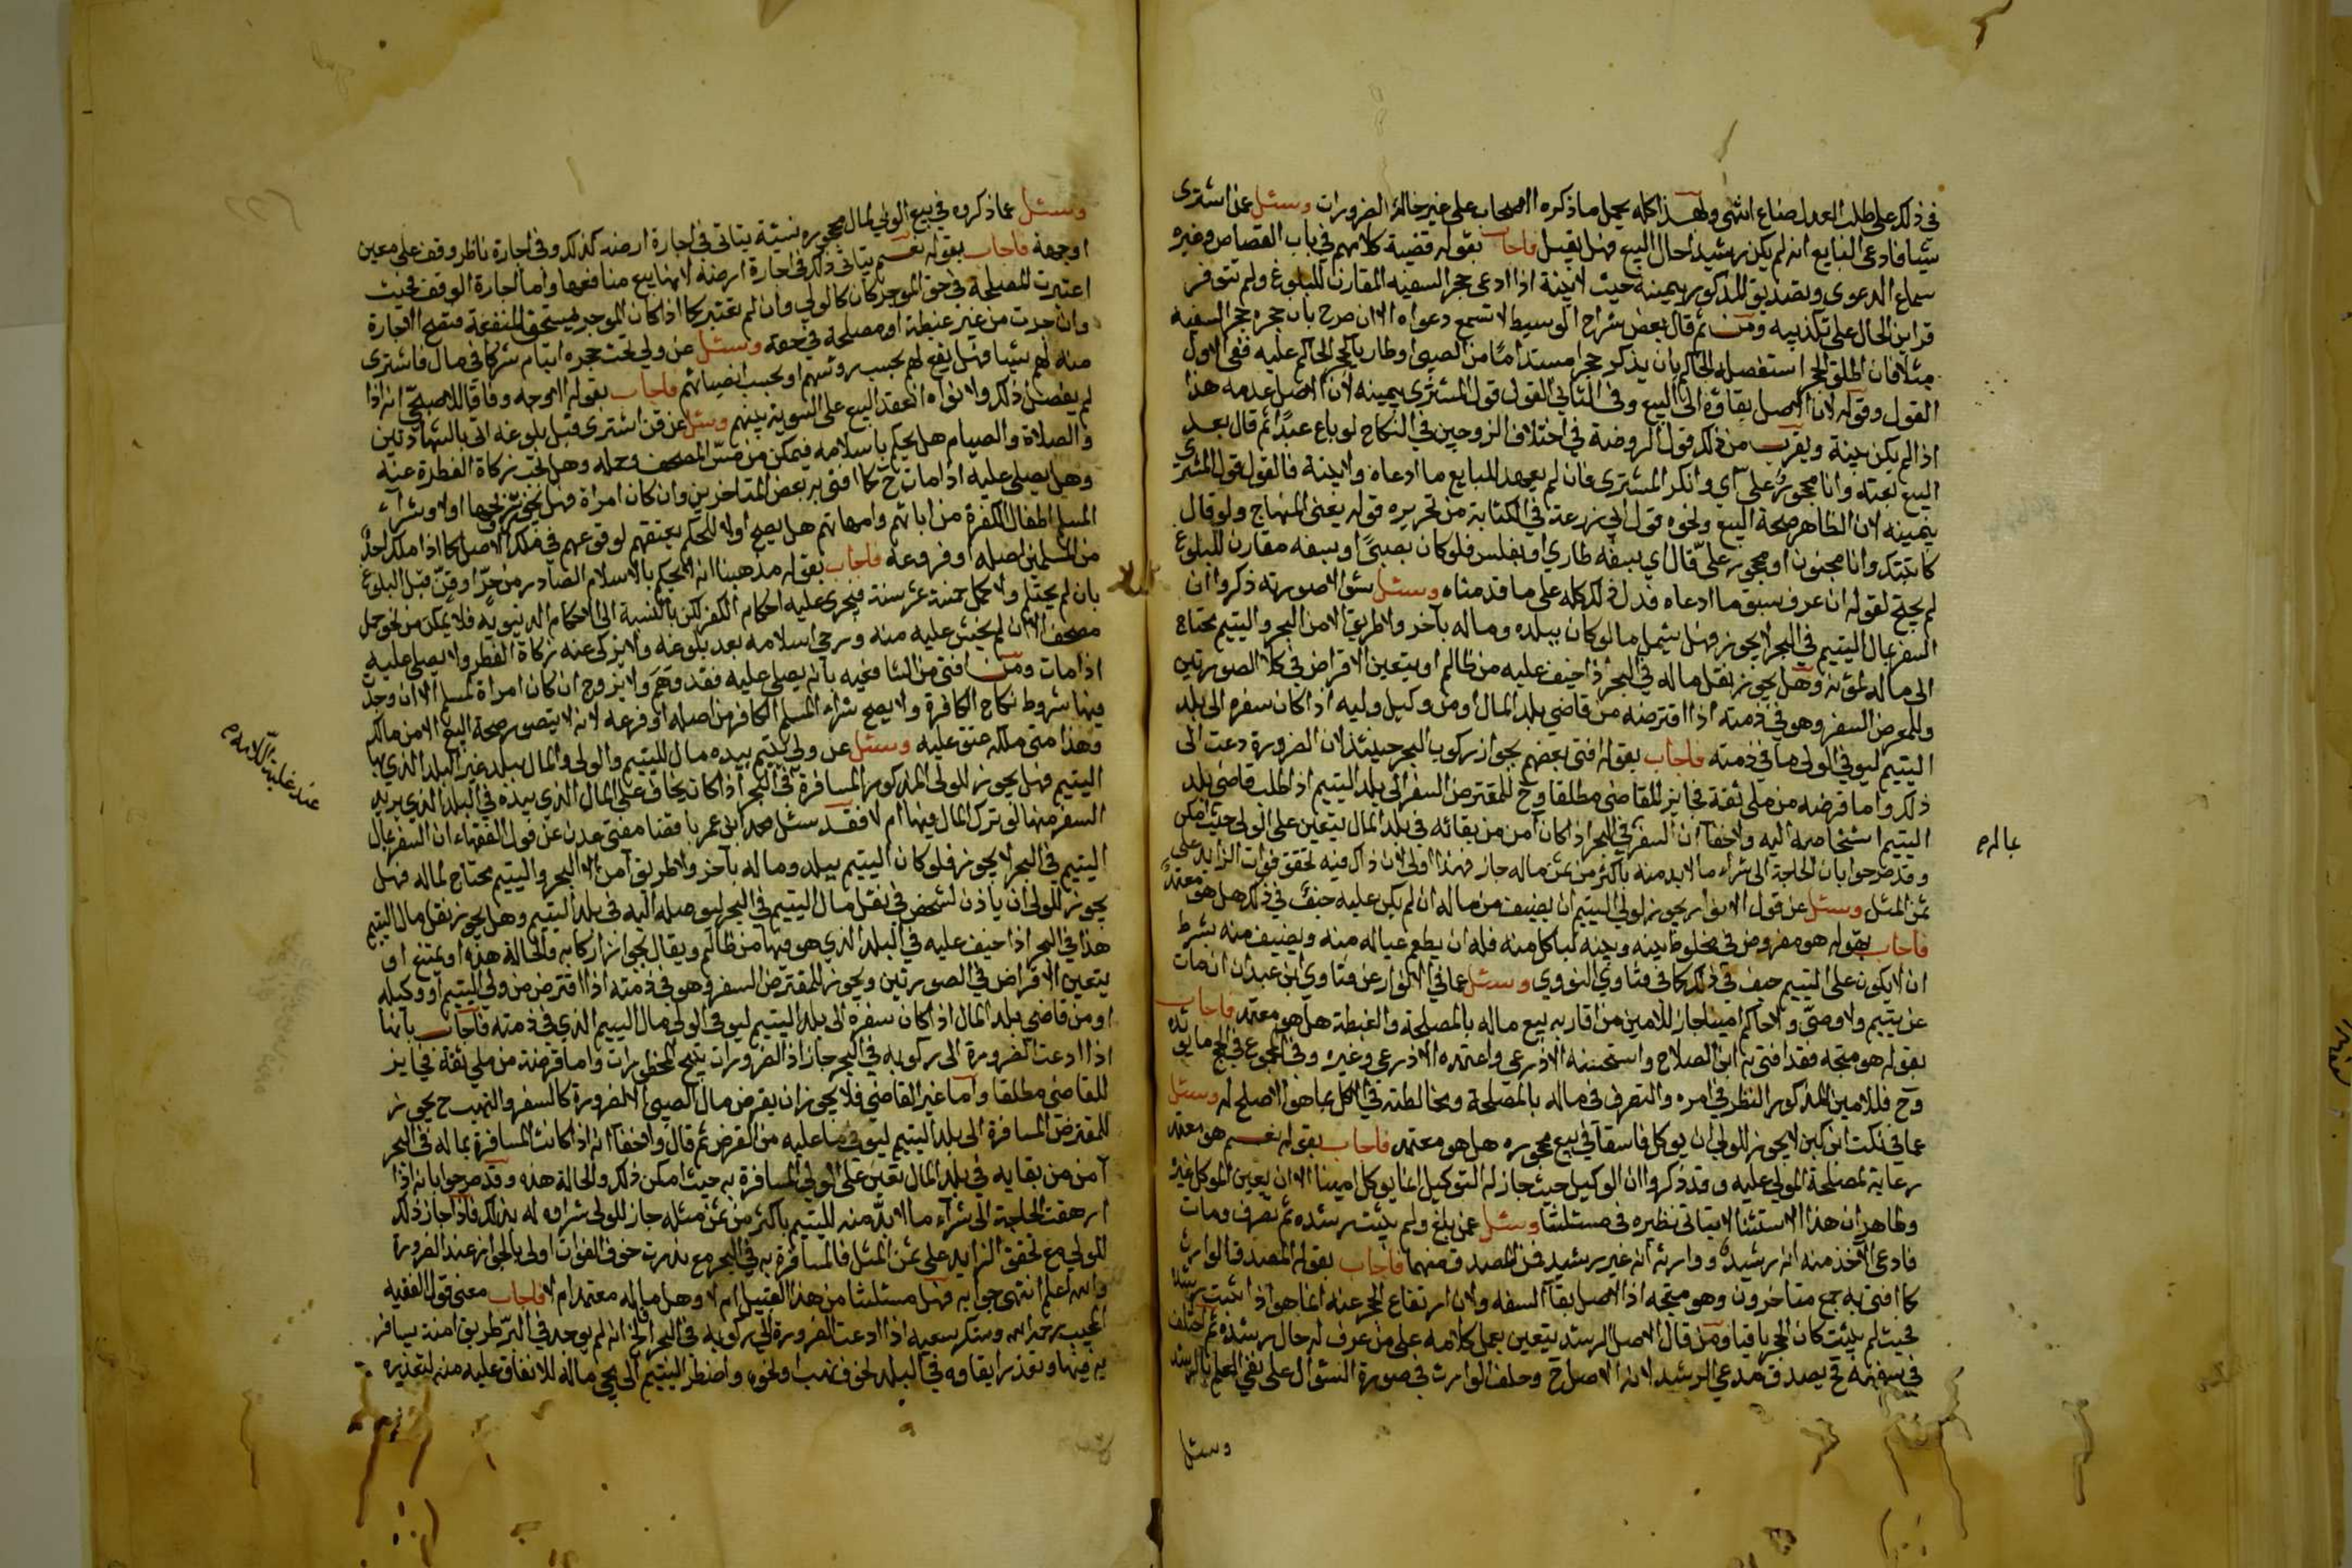 في ذلك على طلب العدل ضاع انتهى ولهذا كله يحمل ما ذكره الاصحاب على غير حالة الضرورات وسئل عمن اشترى
شيا فادعى البايع انه لم يكن رشيدا حال البيع فهل يقبل فاجاب بقوله قضية كلامهم في باب القصاص وغيره
سماع الدعوى وتصديق المذكور بيمينه حيث لا بينة اذا ادعى حجر السفيه المقارن للبلوغ ولم تتوفر
قراين الحال على تكذيبه ومن ثم قال بعض شراح الوسيط لا تسمع دعواه الا ان صرح بان حجره حجر السفيه
مثلا فان اطلق الحجر استفصله الحاكم بان يذكر حجرا مستداما من الصبى او طاريا بحجر الحاكم عليه ففي الاول
القول قوله لان الاصل بقاؤه الى البيع وفي الثاني القول قول المشتري بيمينه لان الاصل عدمه هذا
اذا لم يكن بينة ويقرب من ذلك قول الروضة في اختلاف الزوجين في النكاح لو باع عبدا ثم قال بعد
البيع بعته وانا محجور علي اي وانكر المشتري فان لم يعهد للبايع ما ادعاه ولا بينة فالقول قول المشتري
بيمينه لان الظاهر صحة البيع ونحوه قول ابي زرعة في الكتابة من تحريره قوله يعني المنهاج ولو قال
كاتبتك وانا مجنون او محجور علي قال اي بسفه طاري او بفلس فلو كان بصبى او بسفه مقارن للبلوغ
لم يحتج لقوله ان عرف سبق ما ادعاه فدل ذلك كله على ما قدمناه وسئل سؤالا صورته ذكروا ان
السفر بمال اليتيم في البحر لا يجوز فهل يشمل ما لو كان ببلد وماله بآخر ولا طريق الا من البحر واليتيم محتاج
الى ماله لمؤنه وهل يجوز نقل ماله في البحر اذا خيف عليه من ظالم او يتعين الاقراض في كلا الصورتين
وللمقرض السفر وهو في ذمته اذا اقترضه من قاضي بلد المال او من وكيل وليه اذا كان سفره الى بلد
اليتيم ليوفي الولي ما في ذمته فاجاب بقوله افتى بعضهم بجواز ركوب البحر حينئذ لان الضرورة دعت الى
ذلك واما قرضه من ملي ثقة فجايز للقاضي مطلقا وح للمقترض السفر الى بلد اليتيم اذا طلب قاضي بلد
اليتيم اشخاصه اليه ولا خفا ان السفر في البحر اذا كان آمن من بقائه في بلد المال يتعين على الولي حيث امكن
وقد صرحوا بان الحاجة الى شراء ما لا بد منه باكثر من ثمن ماله جاز فهذا اولى لان ذاك فيه تحقق فوات الزايد على
ثمن المثل وسئل عن قول الانوار يجوز لولي اليتيم ان يضيف من ماله ان لم يكن عليه حيف في ذلك هل هو معتمد
فاجاب بقوله هو مفروض في مخلوط بينه وبينه لياكل منه فله ان يطعم عياله منه ويضيف منه بشرط
ان لا يكون على اليتيم حيف في ذلك كما في فتاوي النووي وسئل عما في الانوار عن فتاوي ابن عبدان ان مات
عن يتيم ولا وصي ولا حاكم امينا جاز للامين من اقاربه بيع ماله بالمصلحة والغبطة هل هو معتمد فاجاب
بقوله هو متجه فقد افتى به ابن الصلاح واستحسنه الاذرعي واعتمده الاذرعي وغيره وفي المجموع في الحج ما يؤيده
وح فللامين المذكور النظر في امره والتصرف في ماله بالمصلحة ومخالطته في الاكل بما هو الاصلح له وسئل
عما في نكت ابن كبن لا يجوز للولي ان يوكل فاسقا في بيع محجوره هل هو معتمد فاجاب بقوله نعم هو معتمد
رعاية لمصلحة المولي عليه وقد ذكروا ان الوكيل حيث جاز له التوكيل انما يوكل امينا الا ان يعين الموكل غيره
وظاهر ان هذا الاستثنا لا يتاتى نظيره في مسئلتنا وسئل عمن بلغ ولم يثبت رشده ثم تصرف ومات
فادعى الآخذ منه انه رشيد ووارثه انه غير رشيد فمن المصدق منهما فاجاب بقوله المصدق الوارث
كما افتى به جمع متاخرون وهو متجه اذ الاصل بقاء السفه ولان ارتفاع الحجر عنه انما هو اذا ثبت رشده
فحيث لم يثبت كان الحجر باقيا ومن قال الاصل الرشد يتعين حمل كلامه على من عرف له حال رشده ثم اختلف
في سفهه فح يصدق مدعي الرشد لانه الاصل ح وحلف الوارث في صورة السؤال على نفي العلم بالرشد
وسئل
بماله م
وسئل عما ذكروه في بيع الولي لمال محجوره نسيئة يتاتى في اجارة ارضه كذلك وفي اجارة ناظر وقف على معين
او جهة فاجاب بقوله نعم يتاتى ذلك في اجارة ارضه لانها بيع منافعها واما اجارة الوقف فحيث
اعتبرت المصلحة في حق الموجر كان كالولي وان لم تعتبر كما اذا كان الموجر المستحق للمنفعة فتصح الاجارة
وان جرت من غير غبطة او مصلحة في حقه وسئل عن ولي تحت حجره ايتام شركا في مال فاشترى
منه لهم شيا فهل يقع لهم بحسب روسهم او بحسب انصبائهم فاجاب بقوله الاوجه وفاقا للاصبحي انه اذا
لم يفصل ذلك ولا نواه انعقد البيع على السوية بينهم وسئل عن قن اشترى قبل بلوغه اتى بالشهادتين
والصلاة والصيام هل يحكم باسلامه فيمكن من مس المصحف وحمله وهل تجب زكاة الفطرة عنه
وهل يصلى عليه اذا مات ح كما افتى به بعض المتاخرين وان كان امراة فهل يجوز تزويجها او لا وشرآء
المسلم اطفال الكفرة من ابائهم وامهاتهم هل يصح او لا للحكم بعتقهم لوقوعهم في ملك الاصل كما اذا ملك احد
من المسلمين اصله او فروعه فاجاب بقوله مذهبنا انه لا يحكم بالاسلام الصادر من حر او قن قبل البلوغ
بان لم يحتلم ولا كمل خمسة عشر سنة فيجرى عليه احكام الكفر لكن بالنسبة الى الاحكام الدنيوية فلا يمكن من نحو حمل
مصحف الا ان لم يخش عليه منه ورجي اسلامه بعد بلوغه ولا يزكى عنه زكاة الفطر ولا يصلى عليه
اذا مات ومن افتى من الشافعيه بانه يصلى عليه فقد وهم ولا يزوج ان كان امراة لمسلم الا ان وجد
فيها شروط نكاح الكافرة ولا يصح شراء المسلم الكافر من اصله او فرعه لانه لا يتصور صحة البيع الا من مالك
وهذا متى ملكه عتق عليه وسئل عن ولي يتيم بيده مال لليتيم والولي والمال ببلد غير البلد الذي بها
اليتيم فهل يجوز للولي المذكور المسافرة في البحر اذا كان يخاف على المال الذي بيده في البلد الذي يريد
السفر منها لو ترك المال فيها ام لا فقد سئل محمد ابن عمر با قضام مفتي عدن عن قول الفقهاء ان السفر بمال
اليتيم في البحر لا يجوز فلو كان اليتيم ببلد وماله بآخر ولا طريق آمن الا البحر واليتيم محتاج لماله فهل
يجوز للولي ان ياذن لشخص في نقل مال اليتيم في البحر ليوصله اليه في بلد اليتيم وهل يجوز نقل مال اليتيم
هذا في البحر اذا خيف عليه في البلد الذي هو فيها من ظالم ويقال بجواز اركابه والحالة هذه او يمتنع او
يتعين الاقراض في الصورتين ويجوز للمقترض السفر وهو في ذمته اذا اقترض من ولي اليتيم او وكيله
او من قاضي بلد المال اذا كان سفره الى بلد اليتيم ليوفي الولي مال اليتيم الذي في ذمته فاجاب بانها
اذا ادعت الضرورة الى ركوبه في البحر جاز اذ الضرورات تبيح المحظورات واما قرضه من ملي ثقة فجايز
للقاضي مطلقا واما غير القاضي فلا يجوز ان يقرض مال الصبي الا لضرورة كالسفر والنهب ح يجوز
للمقترض المسافرة الى بلد اليتيم ليوفي ما عليه من القرض ثم قال ولا خفا انه اذا كانت المسافرة بماله في البحر
آمن من بقايه في بلد المال تعين على الولي المسافرة به حيث امكن ذلك والحالة هذه وقد صرحوا بانه اذا
ارهقت الحاجة الى شرآء ما لا بد منه لليتيم باكثر من ثمن مثله جاز للولي شراوه له بذلك فاذا جاز ذلك
للولي مع تحقق الزايد على ثمن المثل فالمسافرة به في البحر مع ندرت خوف الفوات اولى بالجواز عند الضرورة
والله اعلم انتهى جوابه فهل مسئلتنا من هذا القبيل ام لا وهل ما قاله معتمد ام لا فاجاب معنى قول الفقيه
المجيب رحمه الله وشكر سعيه اذا ادعت الضرورة الى ركوبه في البحر الخ انه لم يوجد في البر طريق امنة يسافر
به فيها وتعذر ابقاوه في البلد لخوف نهب ونحوه واضطر اليتيم الى مجي ماله للانفاق عليه منه لتعذره